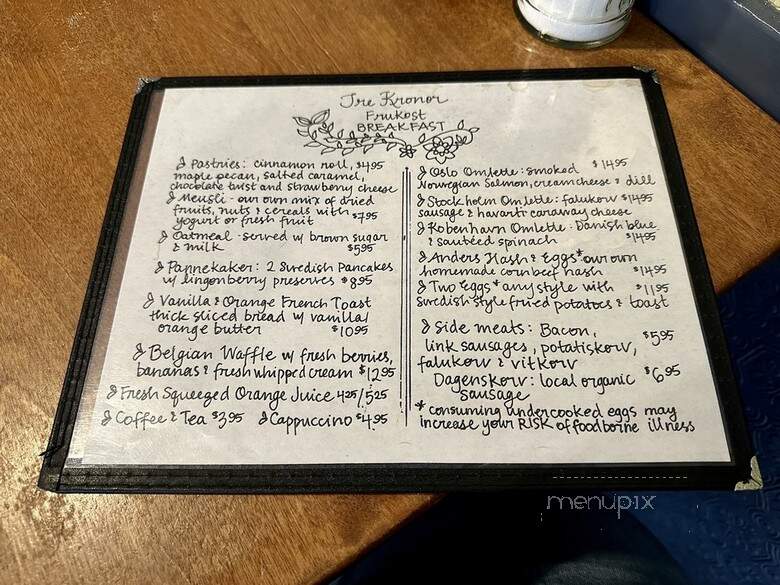 Tre Kronor
Frukost
BREAKFAST
Pastries: cinnamon roll, $4.95
maple pecan, salted caramel,
chocolate twist and strawberry cheese
Meusli - our own mix of dried
fruits, nuts & cereals with
yogurt or fresh fruit $7.95
Oatmeal - served w/ brown sugar
& milk $5.95
Pannekaker: 2 Swedish Pancakes
w/ lingonberry preserves $8.95
Vanilla & Orange French Toast
thick sliced bread w/ vanilla/
orange butter $10.95
Belgian Waffle w/ fresh berries,
bananas & fresh whipped cream $12.95
Fresh Squeezed Orange Juice 4.25/5.25
Coffee & Tea $3.95 Cappuccino $4.95
Oslo Omlette: smoked $14.95
Norwegian Salmon, cream cheese & dill
Stockholm Omlette: falukorv $14.95
sausage & havarti caraway cheese
Kobenhavn Omlette: Danish blue
& sautéed spinach $14.95
Anders Hash & Eggs* our own
homemade cornbeef hash $14.95
Two eggs* any style with $11.95
Swedish style fried potatoes & toast
Side meats: Bacon,
link sausages, potatiskorv, $5.95
falukorv & vitkorv
Dagenskorv: local organic $6.95
sausage
* consuming undercooked eggs may
increase your RISK of foodborne illness
menupix